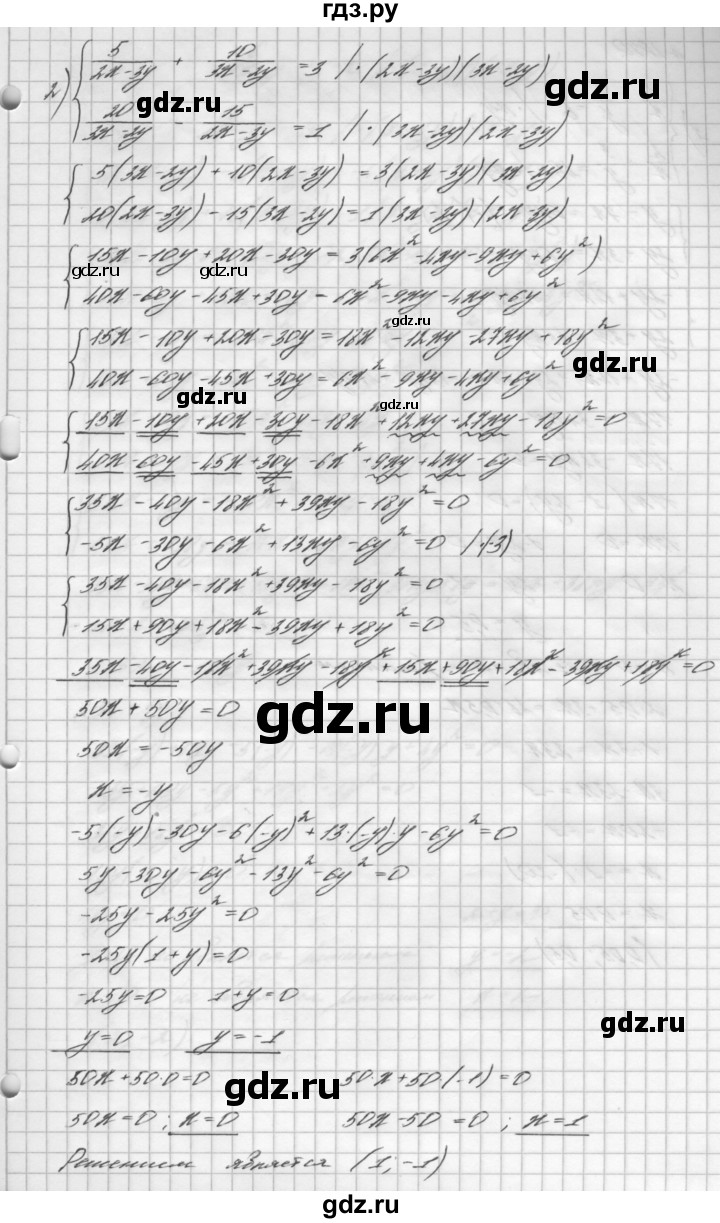 гдз.ру
2) { 5/(2x-3y) + 10/(3x-2y) = 3 | ·(2x-3y)(3x-2y)
gdz.ru
gdz.ru
20/(3x-2y) - 15/(2x-3y) = 1 | ·(3x-2y)(2x-3y)
{ 5(3x-2y)+10(2x-3y) = 3(2x-3y)(3x-2y)
20(2x-3y)-15(3x-2y)=1(3x-2y)(2x-3y)
{ 15x-10y+20x-30y=3(6x²-4xy-9xy+6y²)
gdz.ru gdz.ru
40x-60y-45x+30y=6x²-9xy-4xy+6y²
gdz.ru
{ 15x-10y+20x-30y=18x²-12xy-27xy+18y²
gdz.ru
40x-60y-45x+30y=6x²-9xy-4xy+6y²
gdz.ru gdz.ru
{ 15x-10y+20x-30y-18x²+12xy+27xy-18y²=0
40x-60y-45x+30y-6x²+9xy+4xy-6y²=0
{ 35x-40y-18x²+39xy-18y²=0
-5x-30y-6x²+13xy-6y²=0 |·(-3)
{ 35x-40y-18x²+39xy-18y²=0
15x+90y+18x²-39xy+18y²=0
35x-40y-18x²+39xy-18y²+15x+90y+18x²-39xy+18y²=0
50x+50y=0
gdz.ru
50x=-50y
x=-y
-5(-y)-30y-6(-y)²+13·(-y)·y-6y²=0
5y-30y-6y²-13y²-6y²=0
-25y-25y²=0
-25y(1+y)=0
-25y=0 1+y=0
gdz.ru
y=0 y=-1
50x+50·0=0 50·x+50(-1)=0
gdz.ru
50x=0; x=0 50x-50=0; x=1
Решением является (1;-1)
gdz.ru